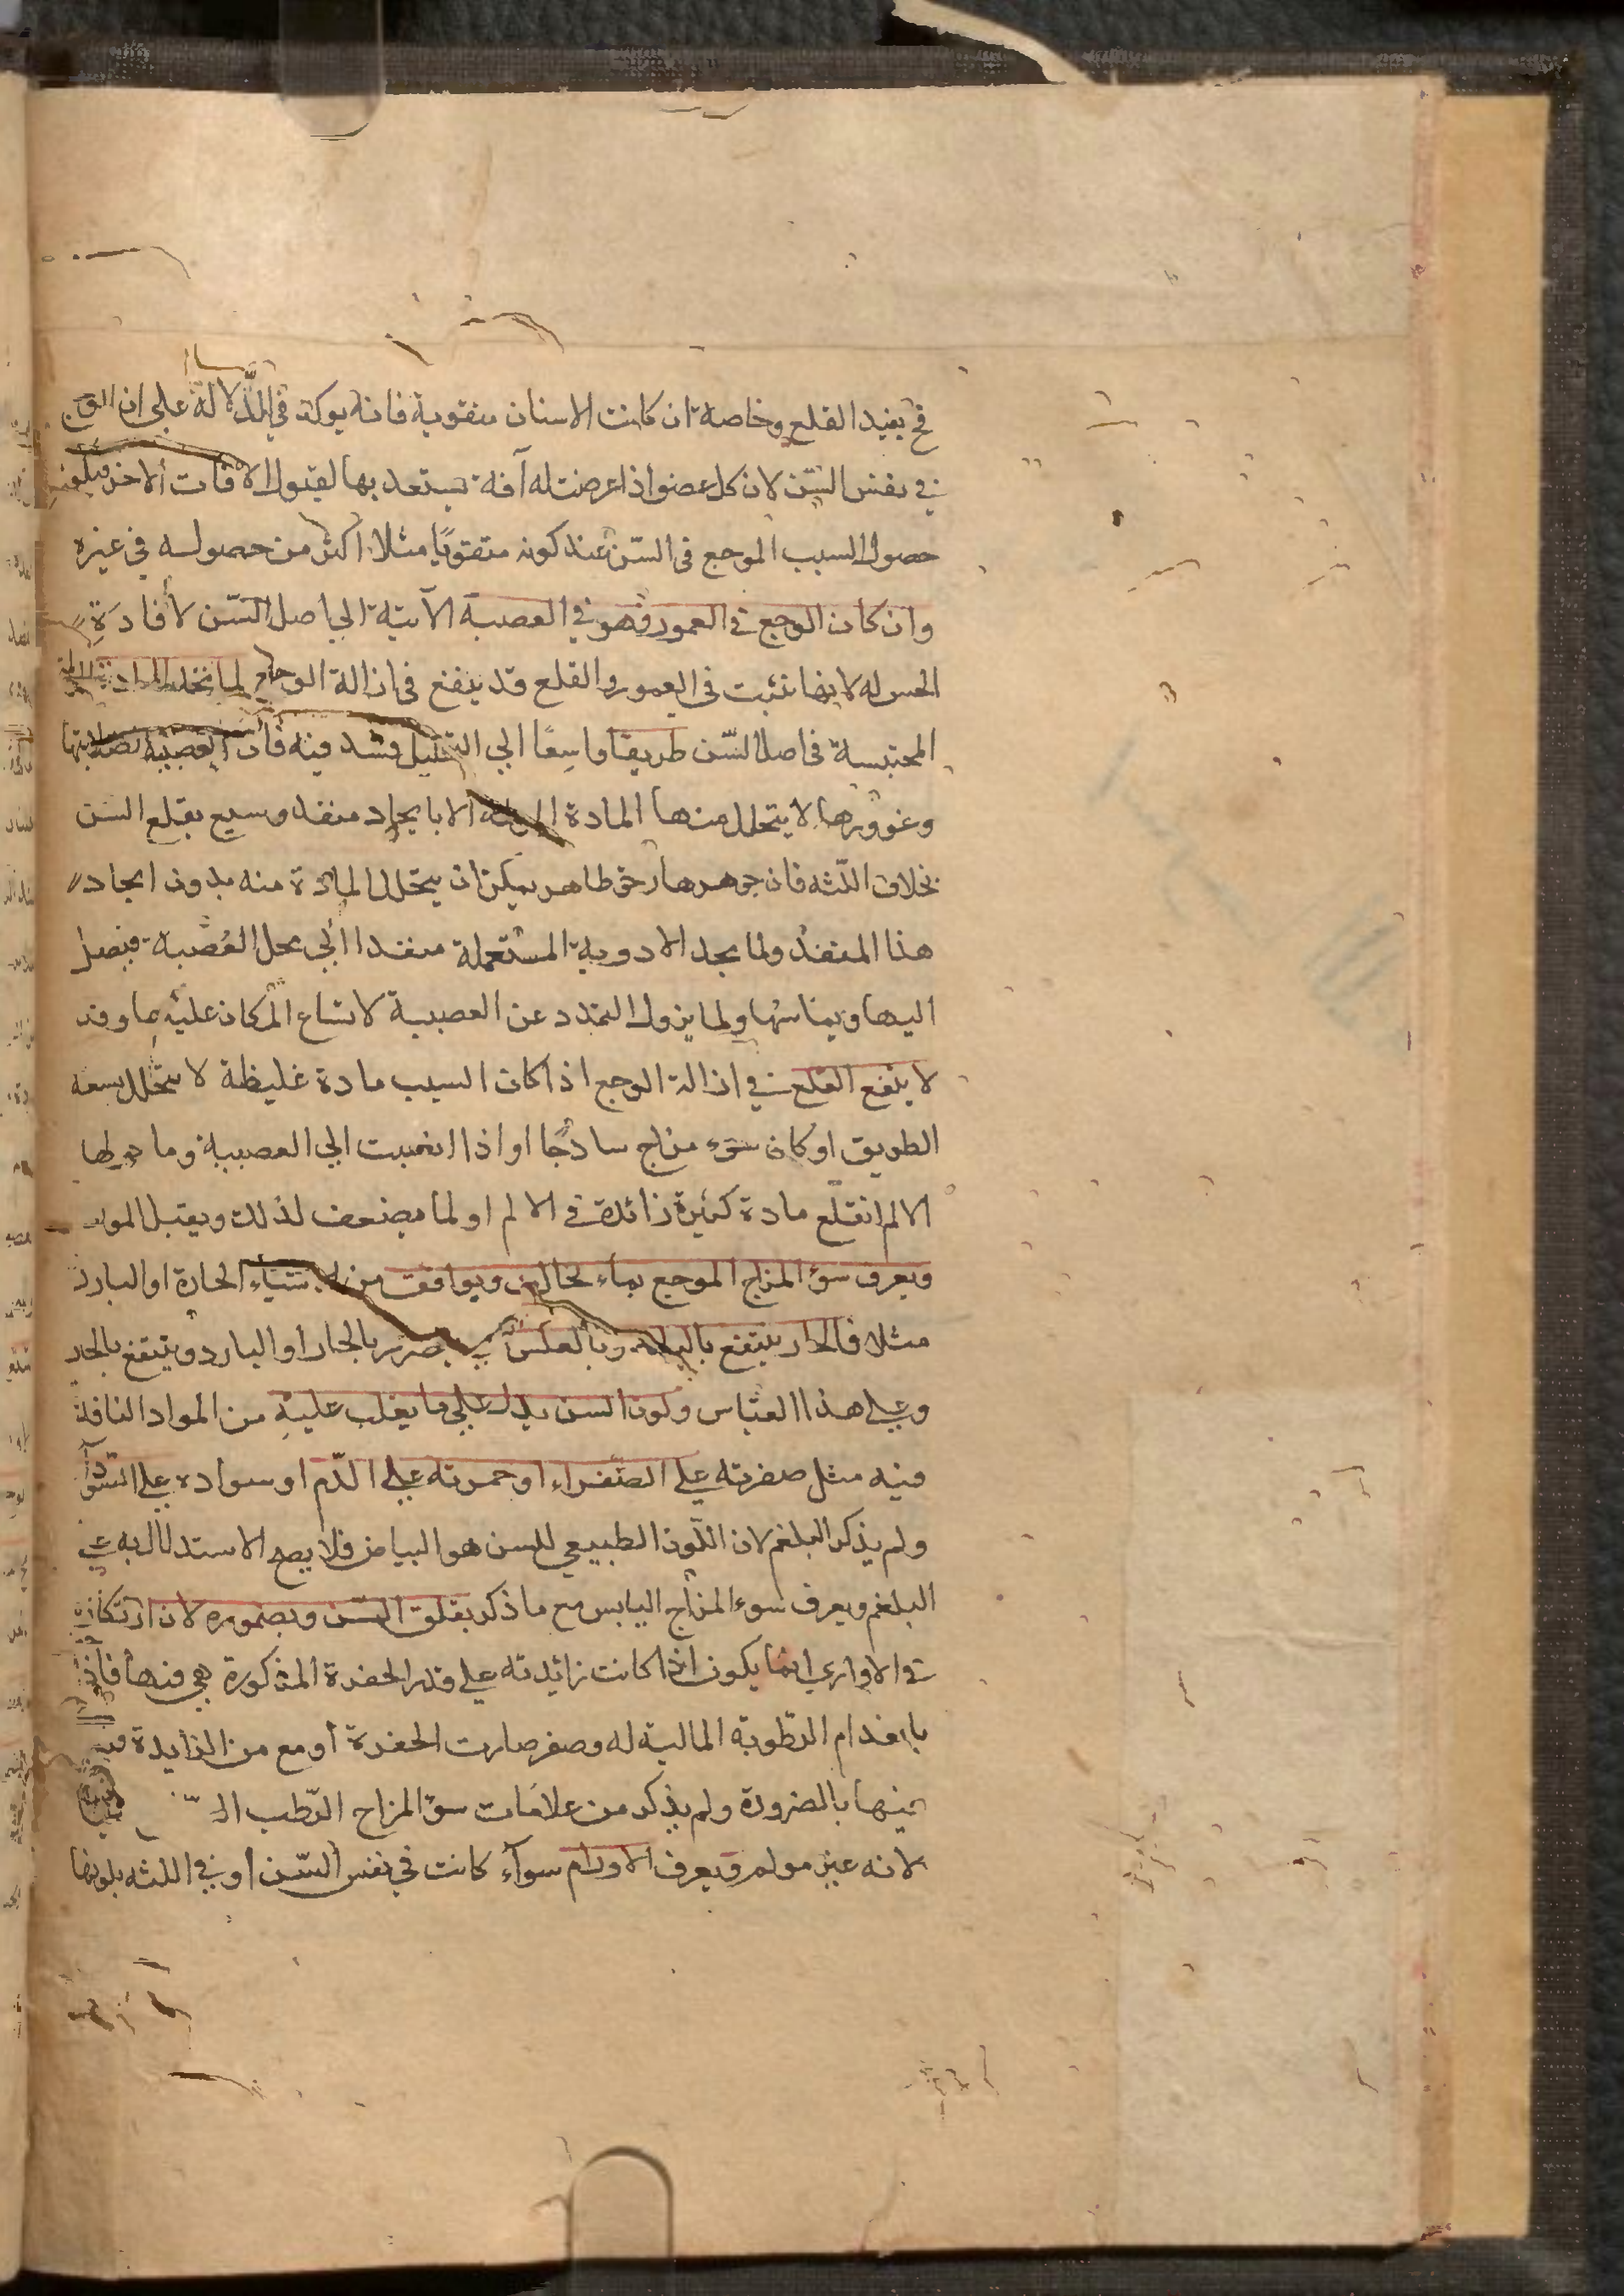 فح يفيد القلع وخاصة ان كانت الاسنان متقوبة فانه يوكد في الدلالة على ان الوجع
في نفس السّن لان كل عضو اذا عرضت له آفة يستعد بها لقبول الافات الاخر فيكون
حصول السبب الموجع في السّن عند كونه متقوبًا مثلا اكثر من حصوله في غيره
وان كان الوجع في العمور فهو في العصبة الآتية الي اصل السّن لافادة
الحس له لانها تثبت في العمور والقلع قد ينفع في ازالة الوجع لما تخلل المادة
المحتبسة في اصل السّن طريقا واسِعًا الي التحليل فيه فان العصبة لصلابتها
وغوورها لا يتحلل منها المادة الا بايجاد منفد وسيع بقلع السّن
بخلاف اللثه فان جوهرها رخو طاهر يمكن ان يتحلل المادة منه بدون ايجاد
هذا المنفذ ولما يجد الادوية المستعملة منفدا الي محل العصبة فيصل
اليها ويماسّها ولما يزول التمدد عن العصبة لاتساع المكان عليها وقد
لا ينفع القلع في ازالة الوجع اذا كان السبب مادة غليظة لا تتحلل بسعة
الطريق او كان سوء مزاج سادجًا او اذا انصبت الي العصبة وما حولها
الالم القلع مادة كثيرة زائدة في الالم او لما يضعف لذلك ويقبل المواد
ويعرف سوء المزاج الموجع بماء يخالف ويوافق من الاشياء الحارة او البارد
مثلا فالحار ينتفع بالبارد وبالعكس بالحار او البارد وينتفع بالحار
وعلي هذا القياس ولون السن يدل علي ما يغلب عليه من المواد النافذة
فيه مثل صفرته علي الصّفراء او حمرته علي الدّم او سواده علي السّوداء
ولم يذكر البلغم لان اللّون الطبيعي للسن هو البياض فلا يصح الاستدلال به علي
البلغم ويعرف سوء المزاج اليابس مع ما ذكر بقلق السّن وبضموره لان ارتكازه
في الاواري انما يكون اذا كانت زائدته علي قدر الحفرة المذكورة هي فيها فاذا
بانعدام الرّطوبة المالية له وصغر صارت الحفرة أوسع من الزايدة
فيها بالضرورة ولم يذكر من علامَات سوّ المزاح الرّطب
لانه غير مولم ويعرف الاورام سوآء كانت في نفس السّن او في اللثه بلونها